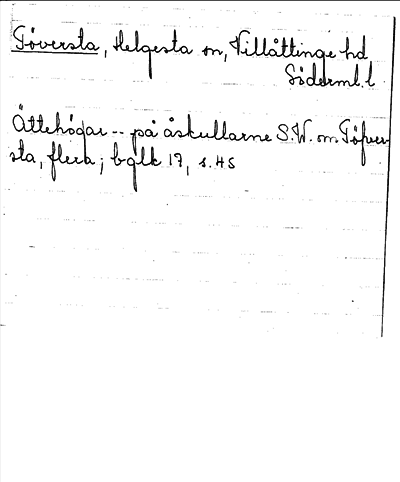 Töversta, Helgesta sn, Villåttinge hd
Söderml. l
Ättehögar -- på åskullarne S.W. om Töfver-
sta, flera; bglk 17, s. 45